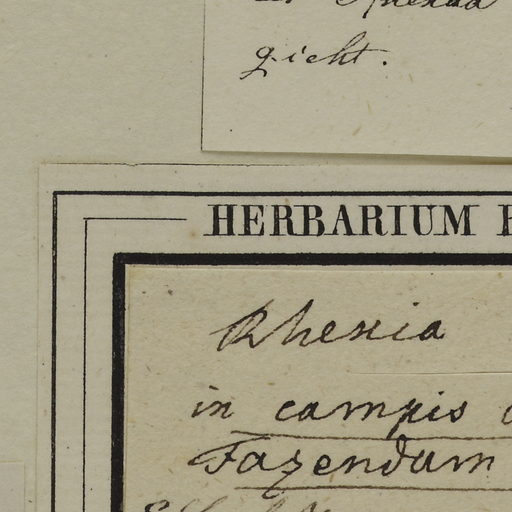 gicht.
HERBARIUM
Rhexia
in campis
Fazendam